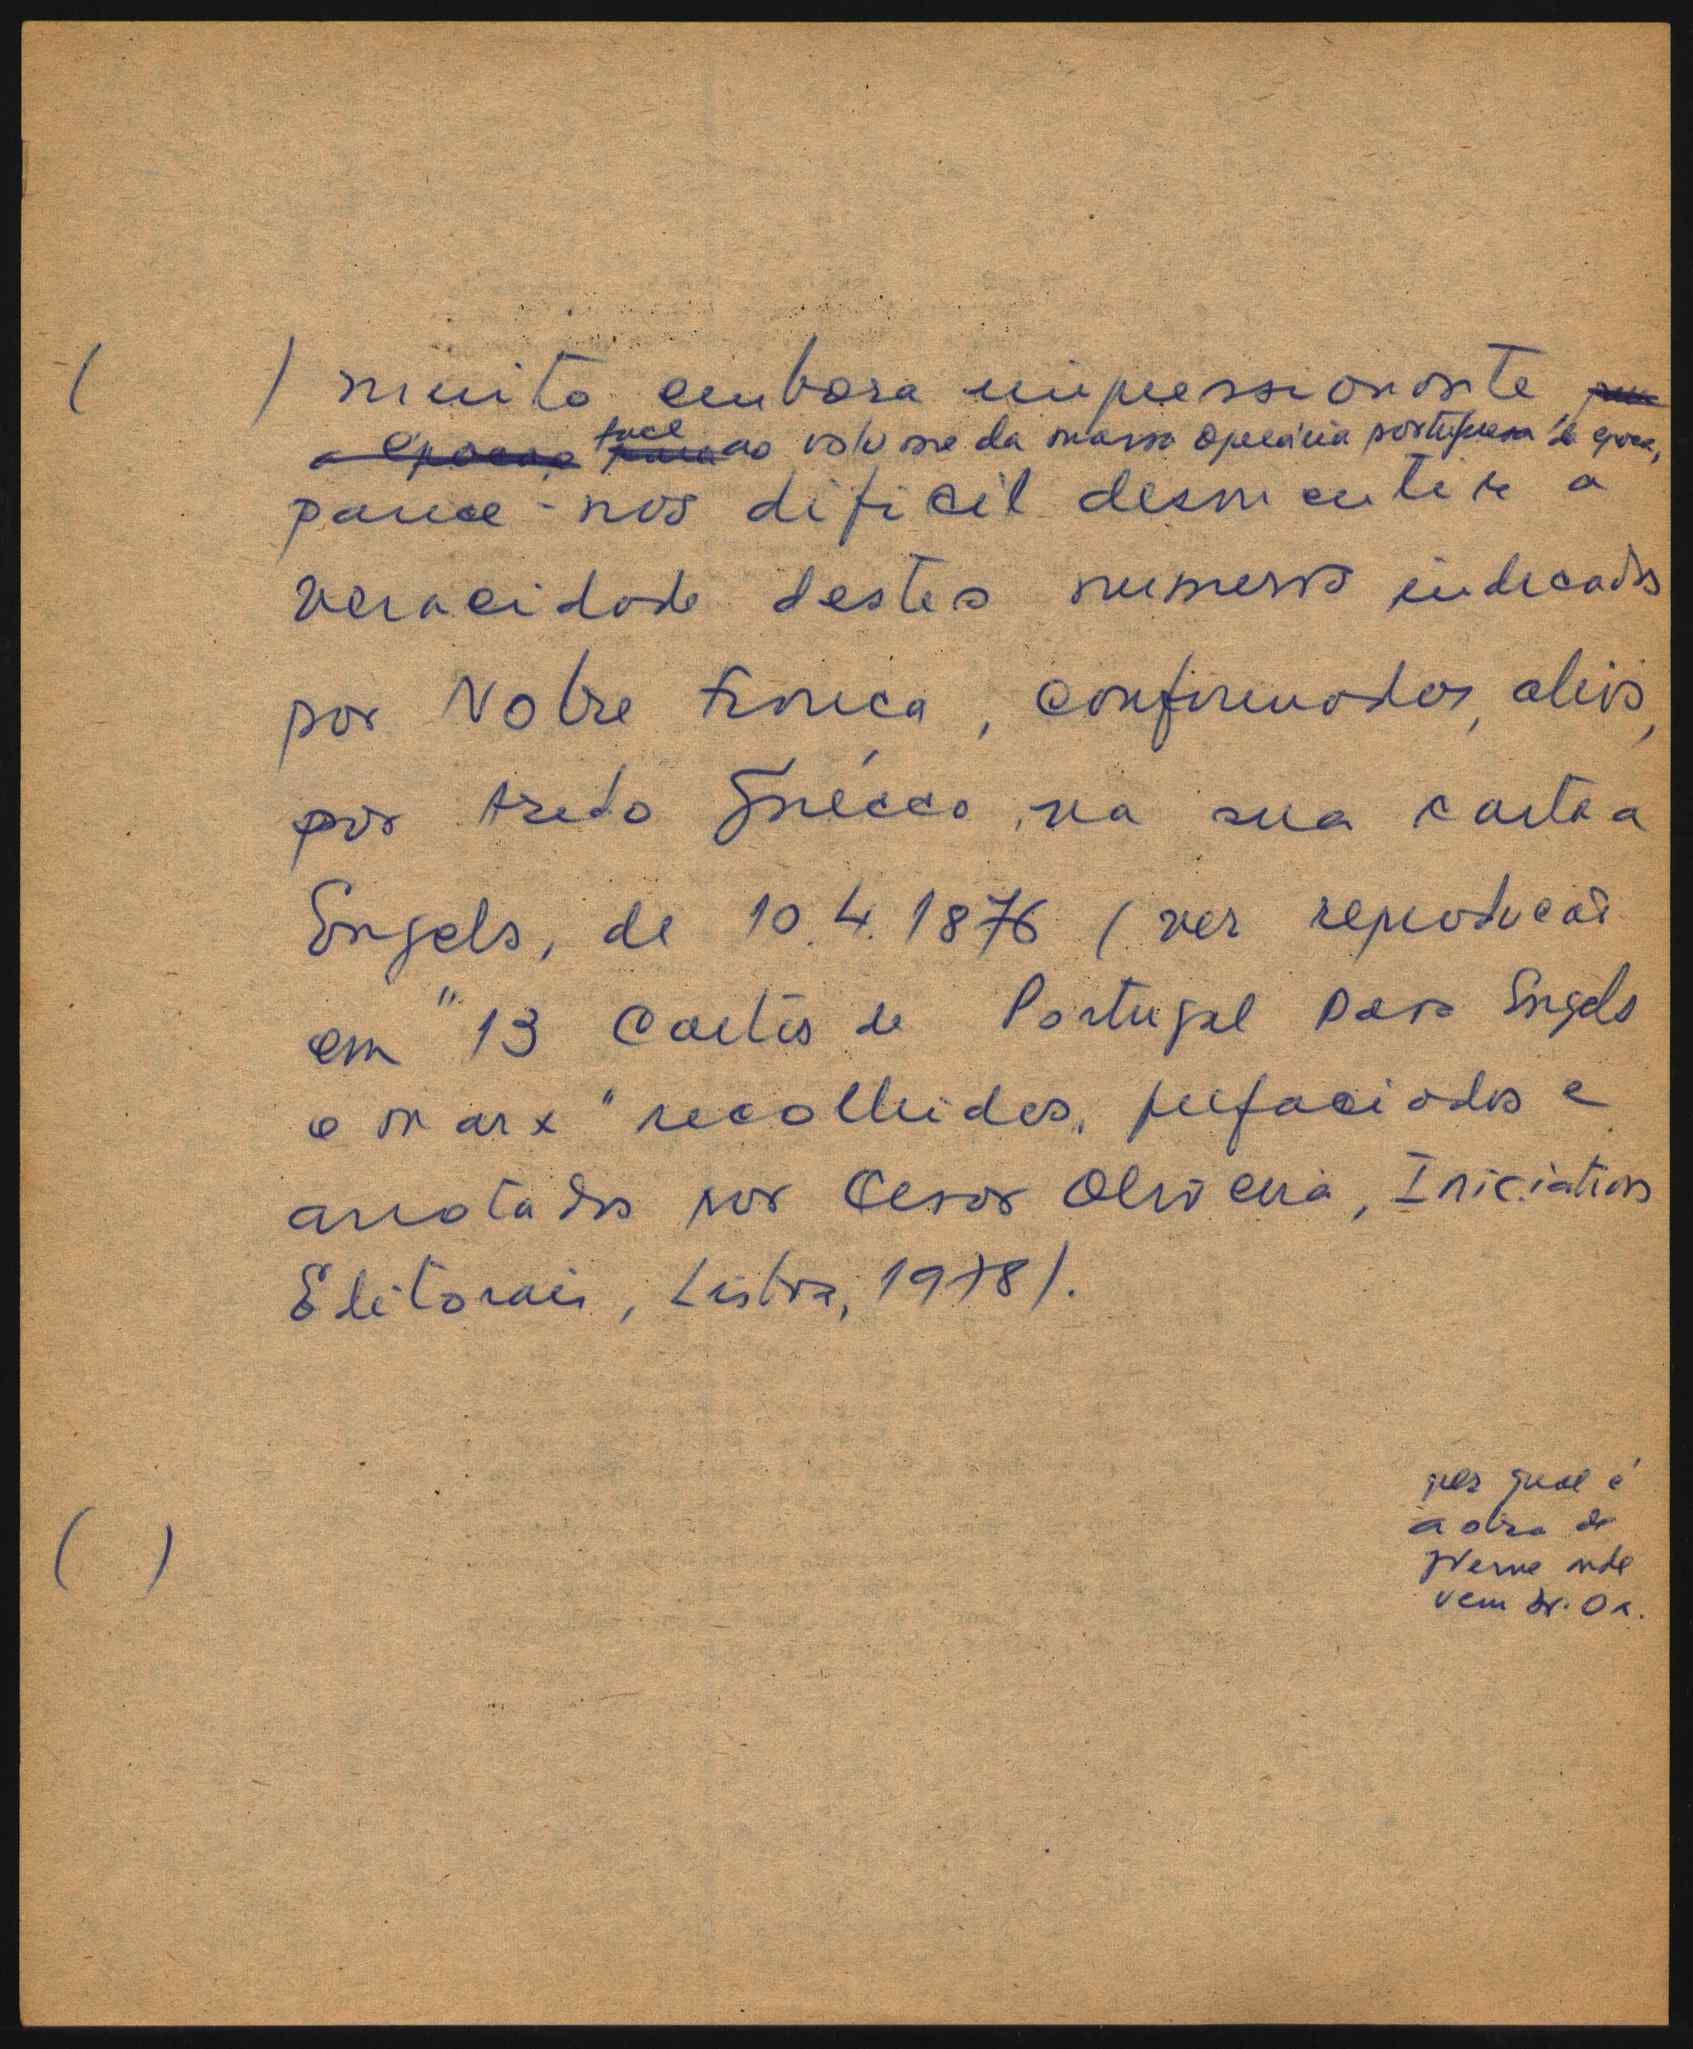 ( ) muito embora impressionante
a época face ao volume da massa operária portuguesa da epoca,
parece-nos dificil desmentir a
veracidade destes numeros indicados
por Nobre França, confirmados, aliás,
por Azedo Gnécco, na sua carta a
Engels, de 10.4.1876 (ver reprodução
em "13 Cartas de Portugal para Engels
e Marx" recolhidas, prefaciadas e
anotadas por Cesar Oliveira, Iniciativas
Editoriais, Lisboa, 1978).
( )
ver qual é
a obra de
JVerne onde
vem Dr. Ox.